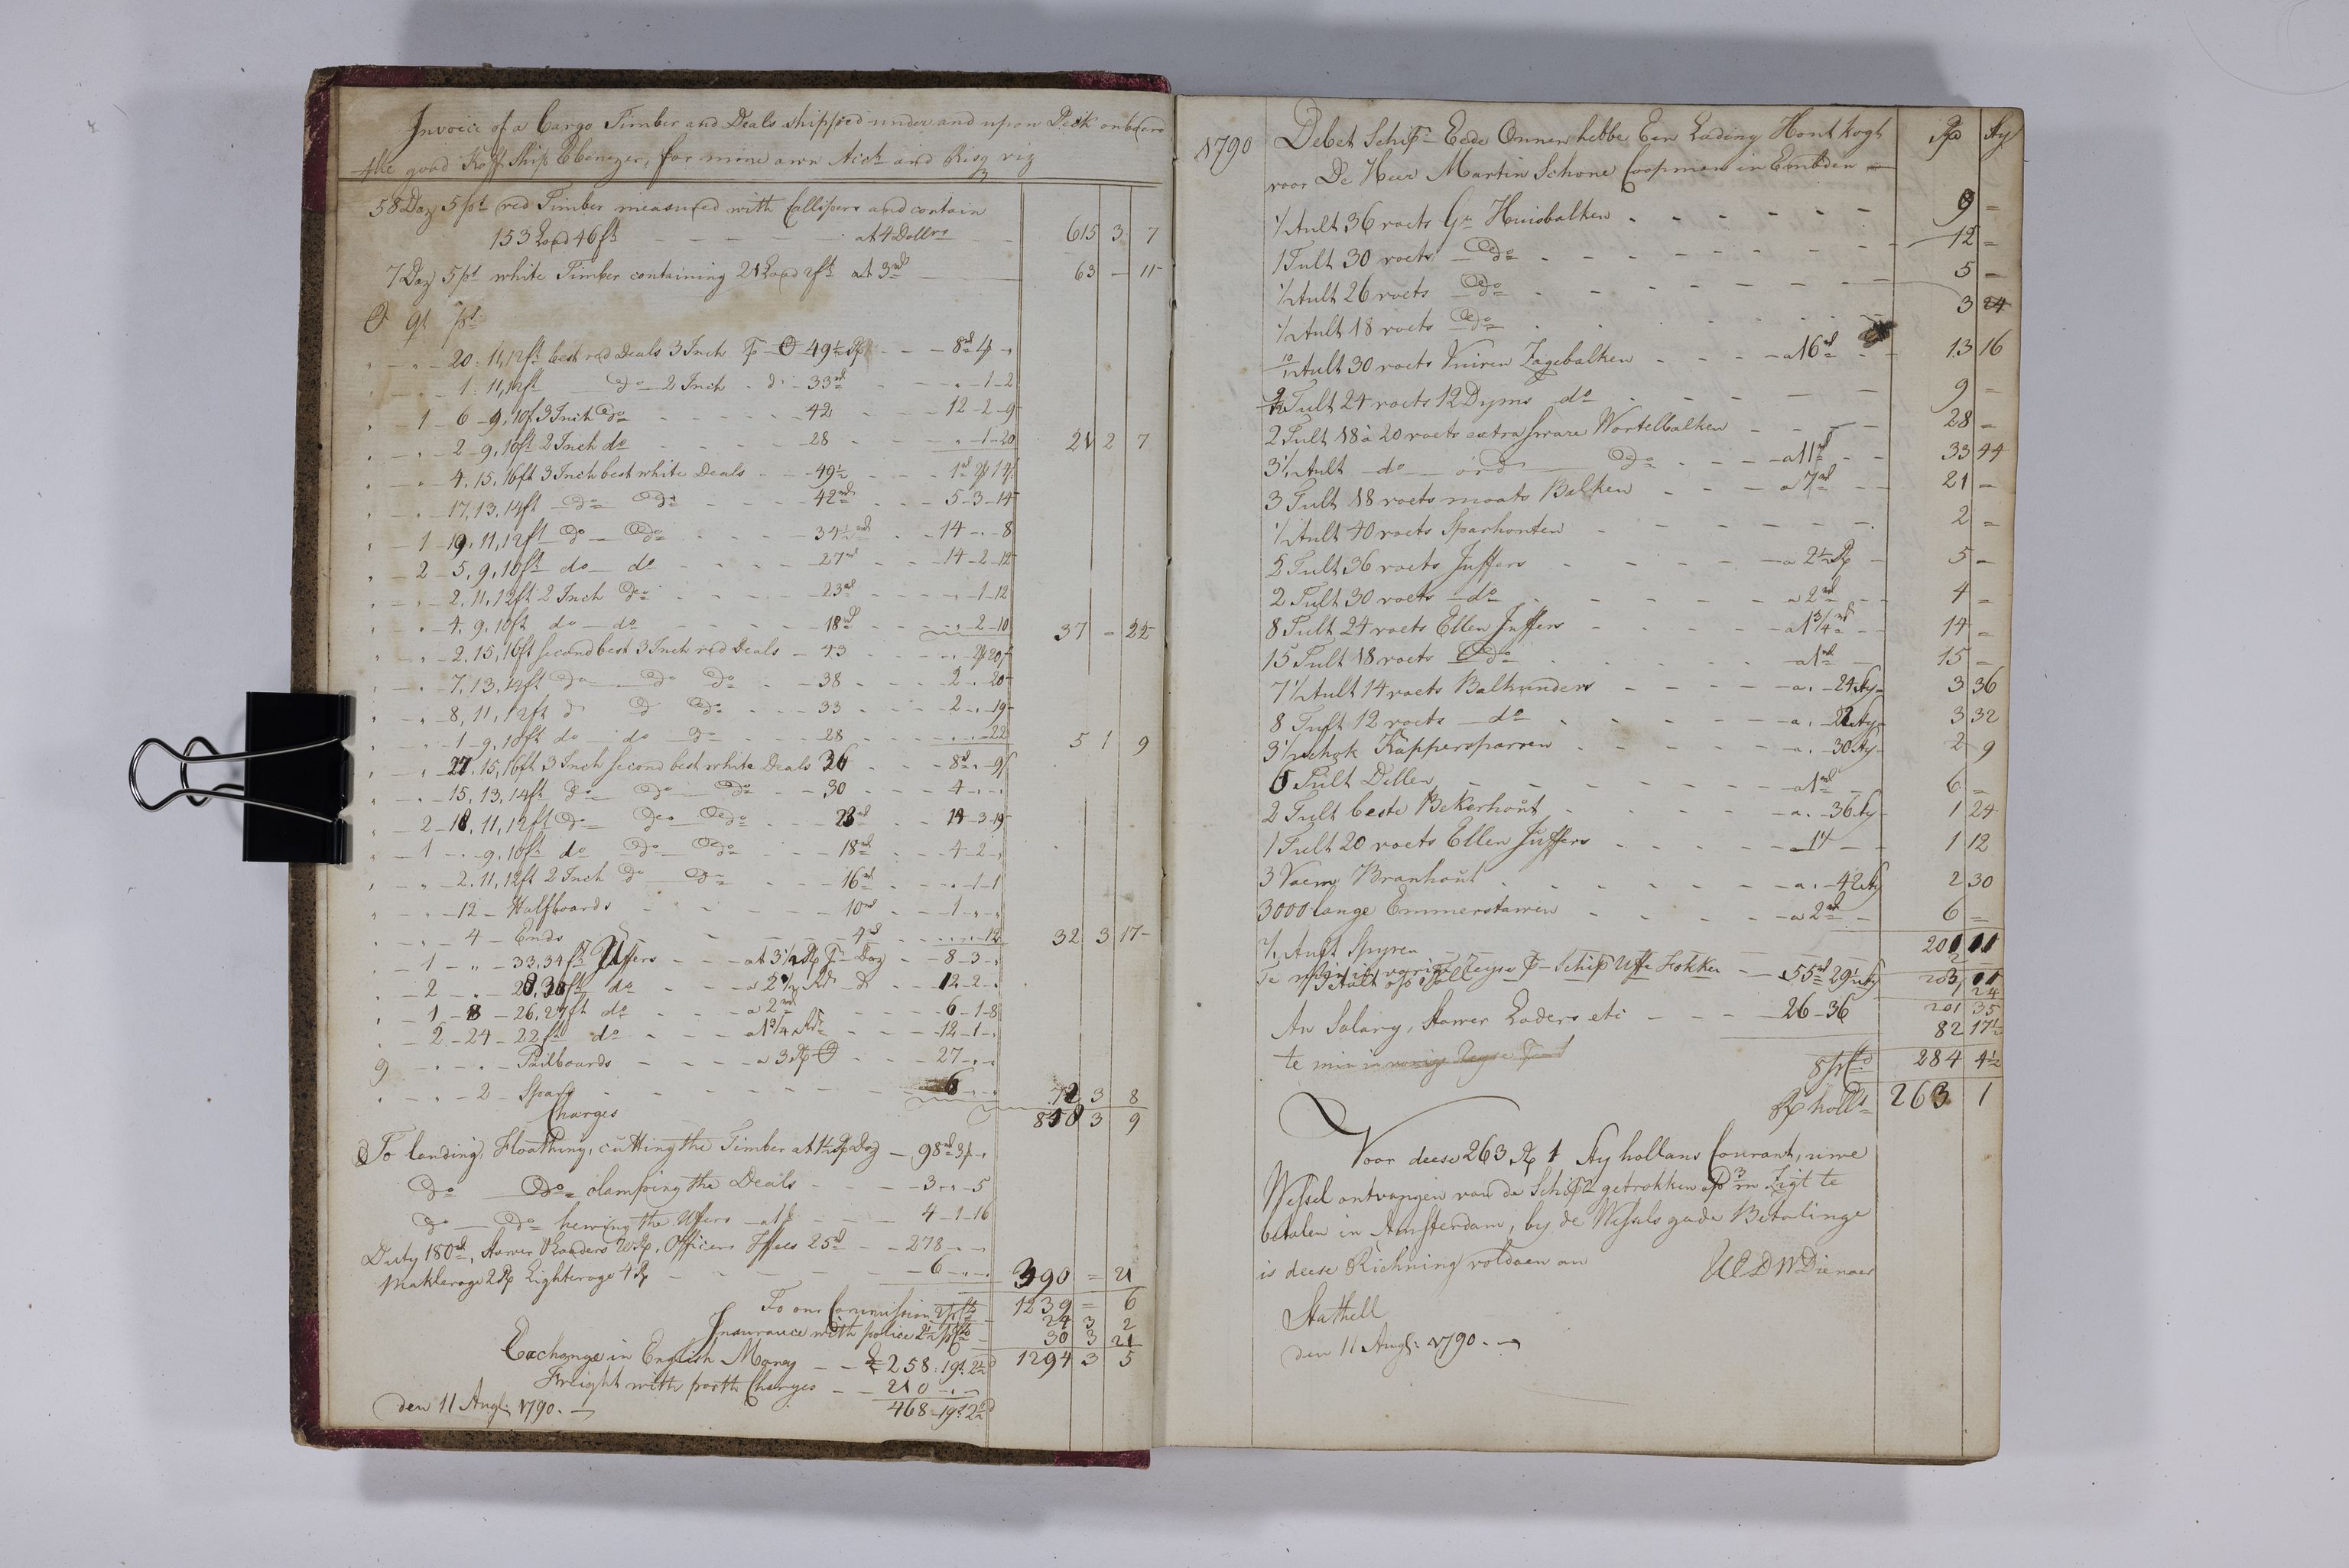 Invoice of a Cargo Timber and Deals shipped under and upon Deck onboard
the good Koff Ship Ebenezer, for mine own and Risq viz
58 Doz 5 ps red Timber measured with Callipers and contain
153 Load 46 ft - - - at 4 Dollrs - 615 3 7
7 Doz 5 ps white Timber containing 21 Load 2 ft at 3 rd 63 - 11
20. 11, 12 ft best red Deals 3 Inch 49½ - - 8 4 -
1. 11, 12 ft do 2 Inch - 33 - - 1 - 2
1 6 - 9, 10 f 3 Inch do - 42 - 12 - 2 - 9
2 - 9, 10 ft 2 Inch do - 28 - - 1 - 20 21 2 7
4. 15, 16 ft 3 Inch best white Deals - - 49½ - -
17, 13, 14 ft do do - 42 - - 5 - 3 - 14
1 - 19. 11, 12 ft do do - 34½ - 14 - - 8
2 - 5, 9, 10 ft do do - 27 - 14 - 2 - 12
2. 11, 12 ft 2 Inch do - 23 - - 1 - 12
4. 9. 10 ft do do - 18 - - 2 - 10 37 - 22
2. 15, 16 ft second best 3 Inch red Deals - 43
7, 13, 14 ft do do do - 38 - 2 - 20
8, 11, 12 ft do do do - 33 - 2 - 19
1 - 9, 10 ft do do do - 28 - - 22 5 1 9
27. 15, 16 ft 3 Inch second best white Deals 36 - - 8 - 9
15, 13, 14 ft do do do - 30 - 4 - -
2 - 18, 11, 12 ft do do do - 23 - 14 - 3 - 19
1 - - 9, 10 ft do do do - 18 - 4 - 2 -
2. 11, 12 ft 2 Inch do do - 16 - - 1 - 1
12 - Halfboards - 10 - 1 - -
4 - Ends - 4 - - - 12 32 3 17
1 - - 33, 34 ft Uffers - - at 3½ Doz - 8 - 3 -
2 - 28, 30 ft do - - 12 - 2 -
1 - 8 - 26, 27 ft do - a 2 - 6 - 1 - 8
2 - 24 - 22 ft do - a 1¾ - 12 - 1 -
9 - - - Pailboards - a 3 - - 27 - -
2 - Spars - - 6 - - 72 3 8
Charges 848 3 9
To landing, Floathing, cutting the Timber at Doz - 98
do do clamping the Deals - - 3 - - 5
do do hewing the Uffers - - 4 - 1 - 16
Duty 180, Officers 25 - - 278 - -
Maklerage 2 Lighterage 4 - - 6 - - 390 = 21
To our Commission 1239 = 6
24 3 2
Insurance with police 30 3 21
Exchange in English Money - - £ 258 : 19 1294 3 5
Freight with porth Charges - - 210 - -
den 11 Aug. 1790. - 468 - 19
1790 Debet Schipr Eede Onnen hebbe Een Lading Hout kogt
voor De Heer Martin Schone Coopman in Embden
½ Tult 36 voets Gr Huisbalken - - - 9 =
1 Tult 30 voets do - - - 12 =
½ Tult 26 voets do - - - 5 =
½ Tult 18 voets do - - - 3 24
Tult 30 voets Vuiren Zagebalken - - a 16 - - 13 16
Tult 24 voets 12 Dyms do - - 9 =
2 Tult 18 à 20 voets extra sware Wortelbalken - - 28 =
3½ Tult do ord do - - a 11 - - 33 44
3 Tult 18 voets moots Balken - - a 7 - 21 =
½ Tult 40 voets Sparhouten - - - 2 =
2 Tult 36 voets Juffers - - a 2½ - 5 =
2 Tult 30 voets do - - a 2 - - 4 =
8 Tult 24 voets Ellen Juffers - - a 1¾ - - 14 =
15 Tult 18 voets do - - a 1 - 15 =
7½ Tult 14 voets Balkunders - - a - 24 3 36
8 Tult 12 voets do - - a 3 32
3½ schok Kappersparren - - a - 30 2 9
6 Tult Dellen - - a 1 - 6 =
2 Tult beste Bekerhout - - a - 36 1 24
1 Tult 20 voets Ellen Juffers - - 1 12
3 Vaem Branhout - - a - 42 2 30
3000 lange Emmerstawen - - a 2 - 6 =
Tult Spyren
Schip Uffe Fokken - 55
An Salary, Loders etc - - 26 - 36 82 17½
te min in vorige Reyse
284 4½
holls 263 1
Voor deese 263 1 hollans Courant, uwe
Wessel ontvangen van de Schipr getrokken op 3 m Zigt te
betalen in Amsterdam, by de Wessels gude Betalinge
is deese Richning voldaen an UED W Dienaer
Stathell
den 11 Aug. 1790. -